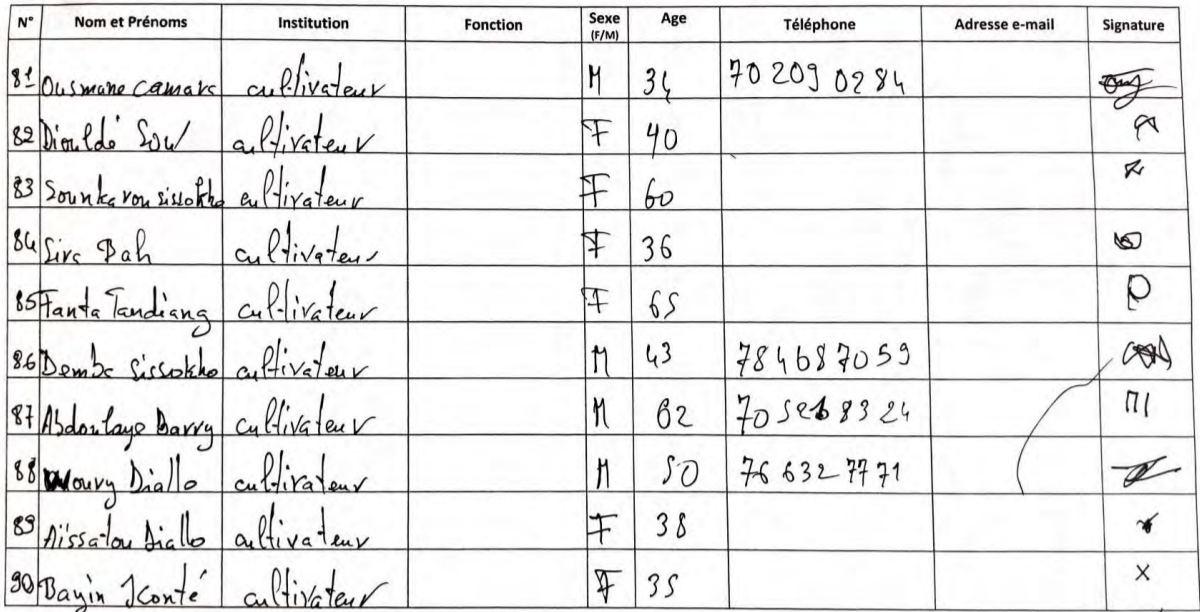 N° Nom et Prénoms Institution Fonction Sexe (F/M) Age Téléphone Adresse e-mail Signature
81 Ousmane Camara cultivateur M 34 70 209 02 84
82 Dioulde Sow cultivateur F 40
83 Sounkarou Sissokho cultivateur F 60
84 Sira Bah cultivateur F 36
85 Fanta Tandiang cultivateur F 65
86 Demba Sissokho cultivateur M 43 784687059
87 Abdoulaye Barry cultivateur M 62
88 Moury Diallo cultivateur M 50 76 632 77 71
89 Aïssatou Diallo cultivateur F 38
90 Bayin Konté cultivateur F 35 X